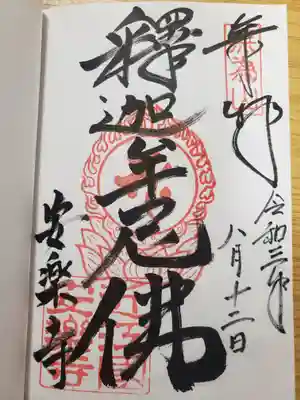 奉拝
令和三年
八月十二日
釋迦牟尼佛
安楽寺